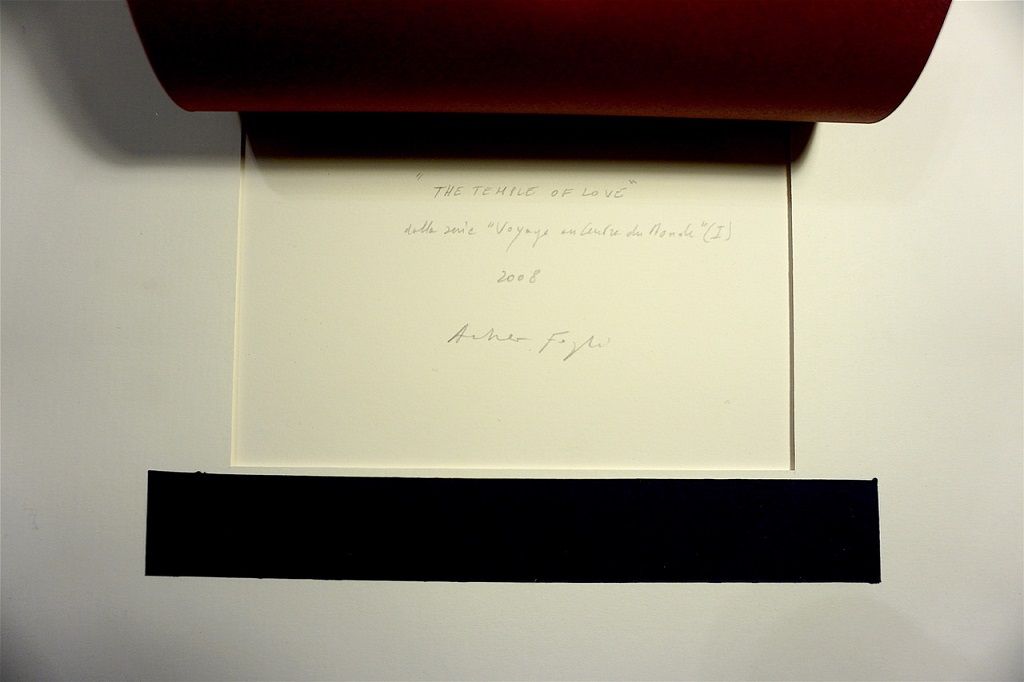 "THE TEMPLE OF LOVE"
dalla serie "Voyage au Centre du Monde" (I)
2008